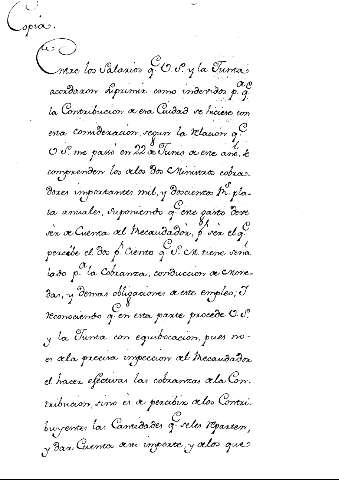 Copia.
Entre los Salarios q.e V. S. y la Junta
acordaron suprimir como indevidos p.a q.e
la Contribucion de esa Ciudad se hiciese con
esta consideracion, segun la relacion q.e
V. S. me pasó en 22 de Junio de este año, se
comprenden los de los dos Ministros cobra-
dores importantes mil, y doscientos R.s pla-
ta anuales, suponiendo q.e este gasto deve
ser de Cuenta del Recaudador, p.r ser el q.e
percibe el dos p.r Ciento q.e S. M. tiene seña
lado p.a la Cobranza, conduccion de Mone-
das, y demas obligaciones de este empleo; I
reconociendo q.e en esta parte procede V. S.
y la Junta con equibocacion, pues no
es de la precisa inspeccion del Recaudador
el hacer efectivas las cobranzas de la Con-
tribucion, sino es de percibir de los Contri-
buyentes las Cantidades q.e se les reparten,
y dar Cuenta de su importe, y de los que